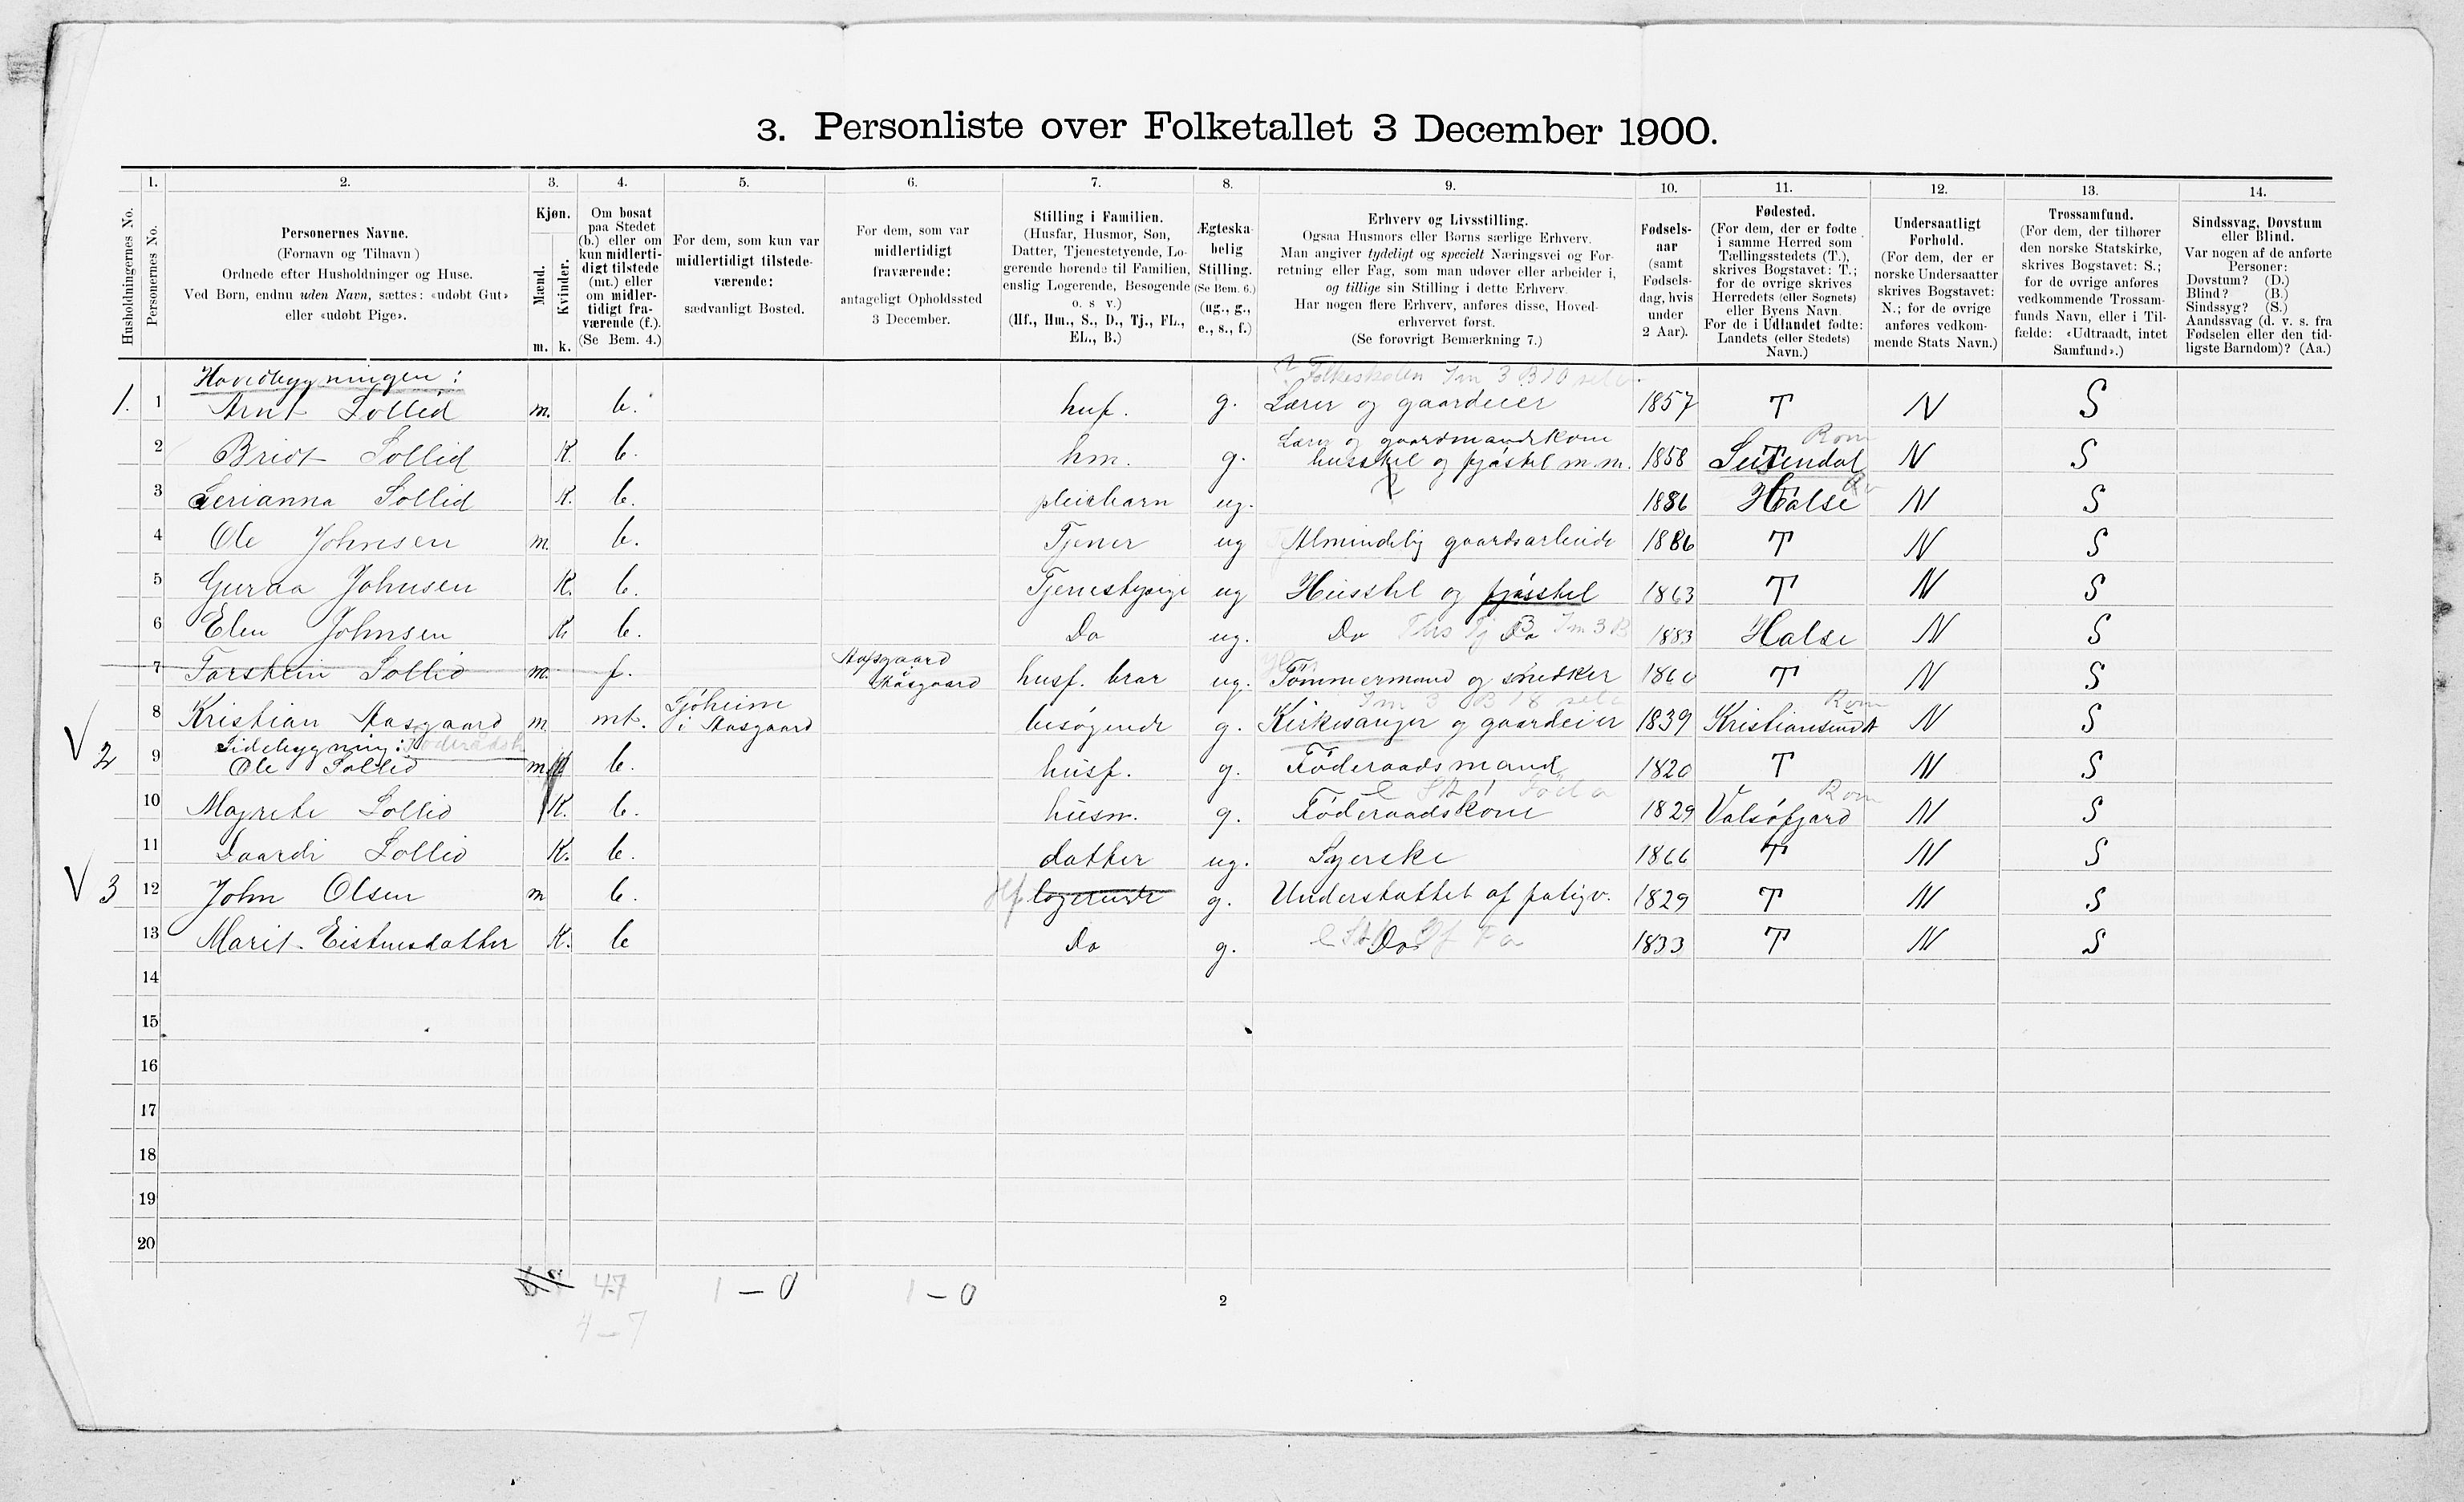 3. Personliste over Folketallet 3 December 1900.
1. 2. 3. 4. 5. 6. 7. 8. 9. 10. 11. 12. 13. 14.
Husholdningernes No.
Personernes No.
Personernes Navne.
(Fornavn og Tilnavn)
Ordnede efter Husholdninger og Huse.
Ved Børn, endnu uden Navn, sættes: «udøbt Gut»
eller «udøbt Pige».
Kjøn.
Mænd.
Kvinder.
m. k.
Om bosat
paa Stedet
(b.) eller om
kun midlerti-
digt tilstede
(mt.) eller
om midler-
tidigt fra-
værende (f.).
(Se Bem. 4.)
For dem, som kun var
midlertidigt tilstede-
værende:
sædvanligt Bosted.
For dem, som var
midlertidigt
fraværende:
antageligt Opholdssted
3 December.
Stilling i Familien.
(Husfar, Husmor, Søn,
Datter, Tjenestetyende, Lo-
gerende hørende til Familien,
enslig Logerende, Besøgende
o. s v.)
(Hf., Hm., S., D., Tj., FL.,
EL., B.)
Ægteska-
belig
Stilling.
(Se Bem. 6.)
(ug., g.,
e., s., f.)
Erhverv og Livsstilling.
Ogsaa Husmors eller Børns særlige Erhverv.
Man angiver tydeligt og specielt Næringsvei og For-
retning eller Fag, som man udøver eller arbeider i,
og tillige sin Stilling i dette Erhverv.
Har nogen flere Erhverv, anføres disse, Hoved-
erhvervet først.
(Se forøvrigt Bemærkning 7.)
Fødsels-
aar
(samt
Fødsels-
dag, hvis
under
2 Aar).
Fødested.
(For dem, der er fødte
i samme Herred som
Tællingsstedets (T.),
skrives Bogstavet: T.;
for de øvrige skrives
Herredets (eller Sognets)
eller Byens Navn.
For de i Udlandet fødte:
Landets (eller Stedets)
Navn.)
Undersaatligt
Forhold.
(For dem, der er
norske Undersaatter
skrives Bogstavet:
N.; for de øvrige
anføres vedkom-
mende Stats Navn.)
Trossamfund.
(For dem, der tilhører
den norske Statskirke,
skrives Bogstavet: S.;
for de øvrige anføres
vedkommende Trossam-
funds Navn, eller i Til-
fælde: «Udtraadt, intet
Samfund».)
Sindssvag, Døvstum
eller Blind.
Var nogen af de anførte
Personer:
Døvstum? (D.)
Blind? (B.)
Sindssyg? (S.)
Aandssvag (d. v. s. fra
Fødselen eller den tid-
ligste Barndom)? (Aa.)
Hovedbygningen:
Folkeskolen
1. 1 Arnt Sollid m. b. huf. g. Lærer og gaardeier 1857 T N S
Lærer og gaardmandskone Rom
2 Bridt Sollid K. b. hm. g. husstel og fjøsstel m.m. 1858 N S
3 Serianna Sollid K. b. pleiebarn ug. 1886 Halse N S
4 Ole Johnsen m. b. Tjener ug Almindelig gaardsarbeide 1886 T N S
5 Guraa Johnsen K. b. Tjenestepige ug Husstel og fjøsstel 1863 T N S
6 Elen Johnsen K. b. Do ug. Do 1883 Halse N S
Aasgaard
7 Torstein Sollid m. f. husf. bror ug. Tømmermand og snedker 1860 T N S
Rom
8 Kristian Aasgaard m. mt. i Aasgaard besøgende g. Kirkesanger og gaardeier 1839 Kristiansund N S
Sidebygning:
2 9 Ole Sollid m b. husf. g. Føderaadsmand 1820 T N S
Rom
10 Magrete Sollid K. b. husm. g. Føderaadskone 1829 Valsøfjord N S
11 Sollid K. b. datter ug. Syerske 1866 T N S
3 12 John Olsen m b. Hf logerende g. Understøttet af fatigv. 1829 T N S
13 Marit Eistensdatter K. b Do g. Do 1833 T N S
14
15
16
17
18
19
20
4-7 1 – 0 1 – 0
4 – 7
2